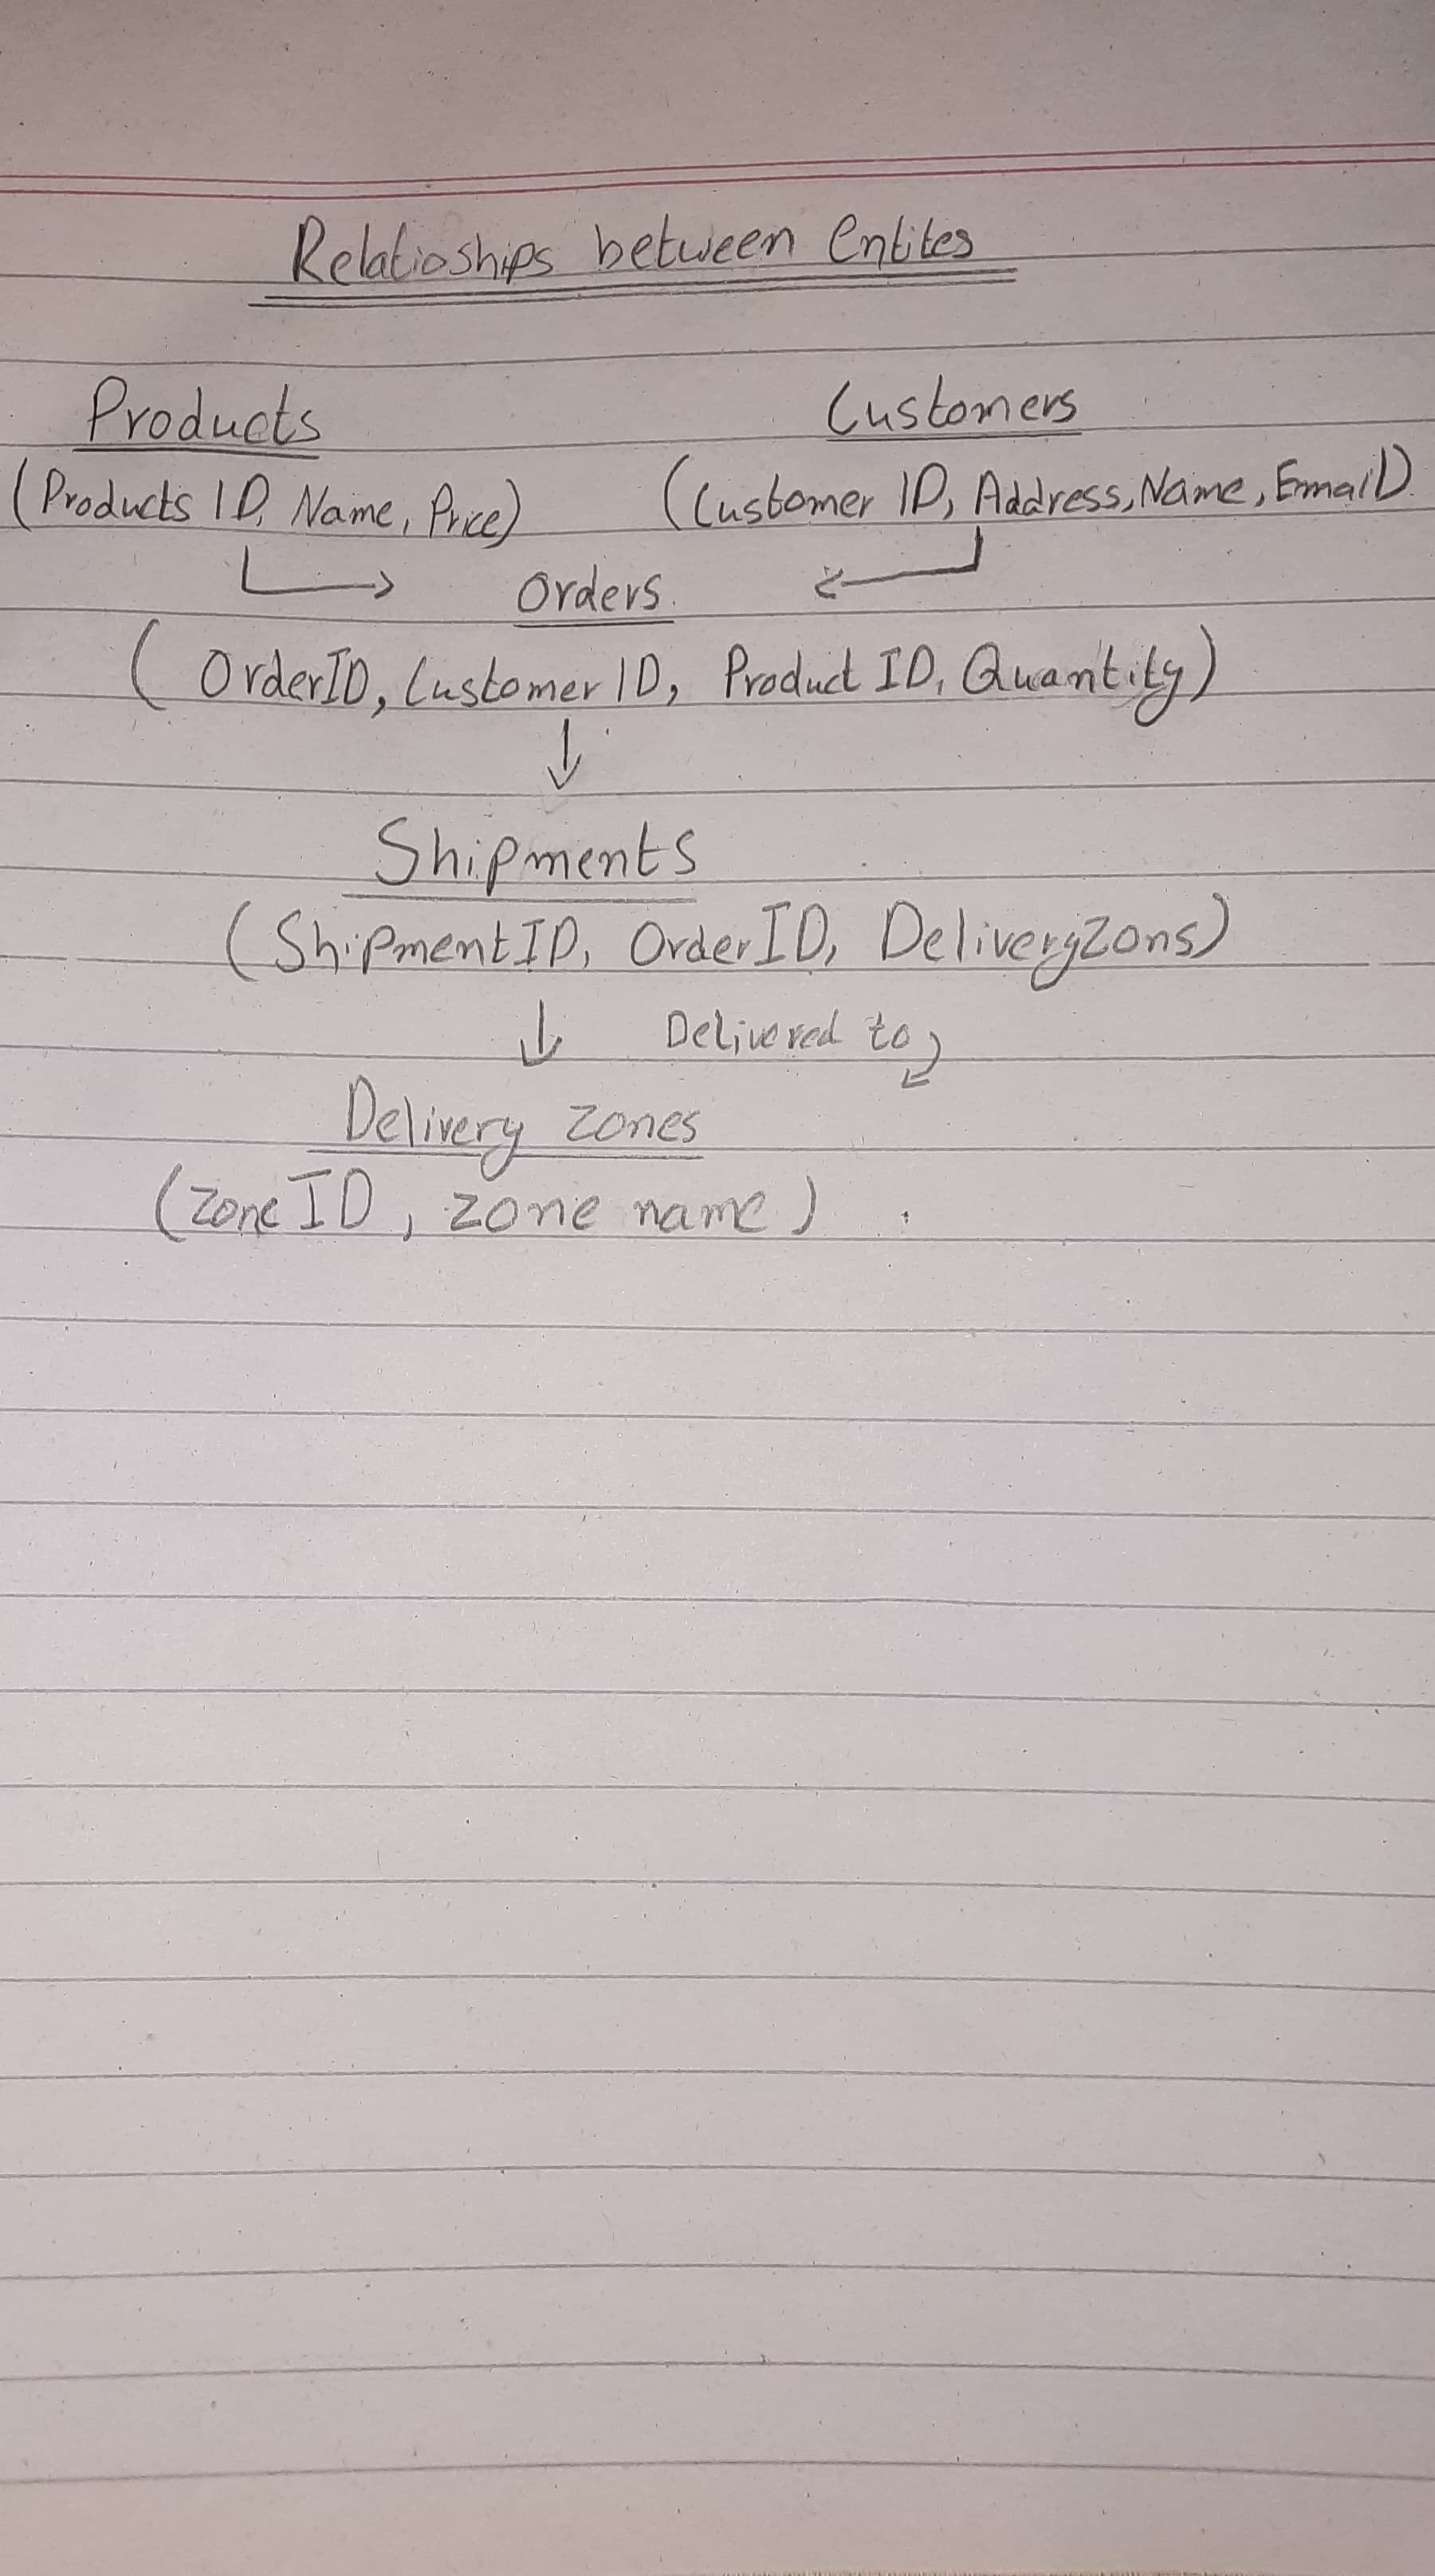 Relatioships between Entites
Products Customers
(Products ID, Name, Price) (Customer ID, Address, Name, Email)
Orders
(OrderID, Customer ID, Product ID, Quantity)
Shipments
(ShipmentID, OrderID, DeliveryZons)
Delivered to
Delivery zones
(ZoneID, zone name)